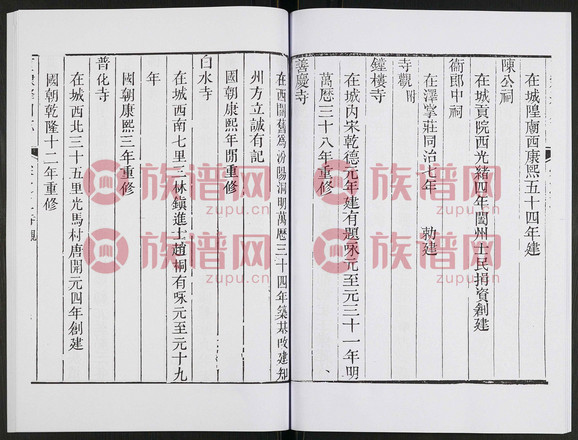 在城隍廟西康熙五十四年建
陳公祠
在城貢院西光緒四年閤州士民捐資創建
衛郎中祠
在澤掌莊同治七年 勅建
寺觀附
鐘樓寺
在城內宋乾德元年建有題咏元至元三十一年明
萬曆三十八年重修
善慶寺
在西關舊為汾陽洞明萬曆三十四年築基改建知
州方立誠有記
國朝康熙年間重修
白水寺
在城西南七里二林鎮進士趙桐有咏元至元十九
年
國朝康熙三年重修
普化寺
在城西北三十五里光馬村唐開元四年創建
國朝乾隆十二年重修
族谱网
zupu.cn
族谱网
zupu.cn
族谱网
zupu.cn
族谱网
zupu.cn